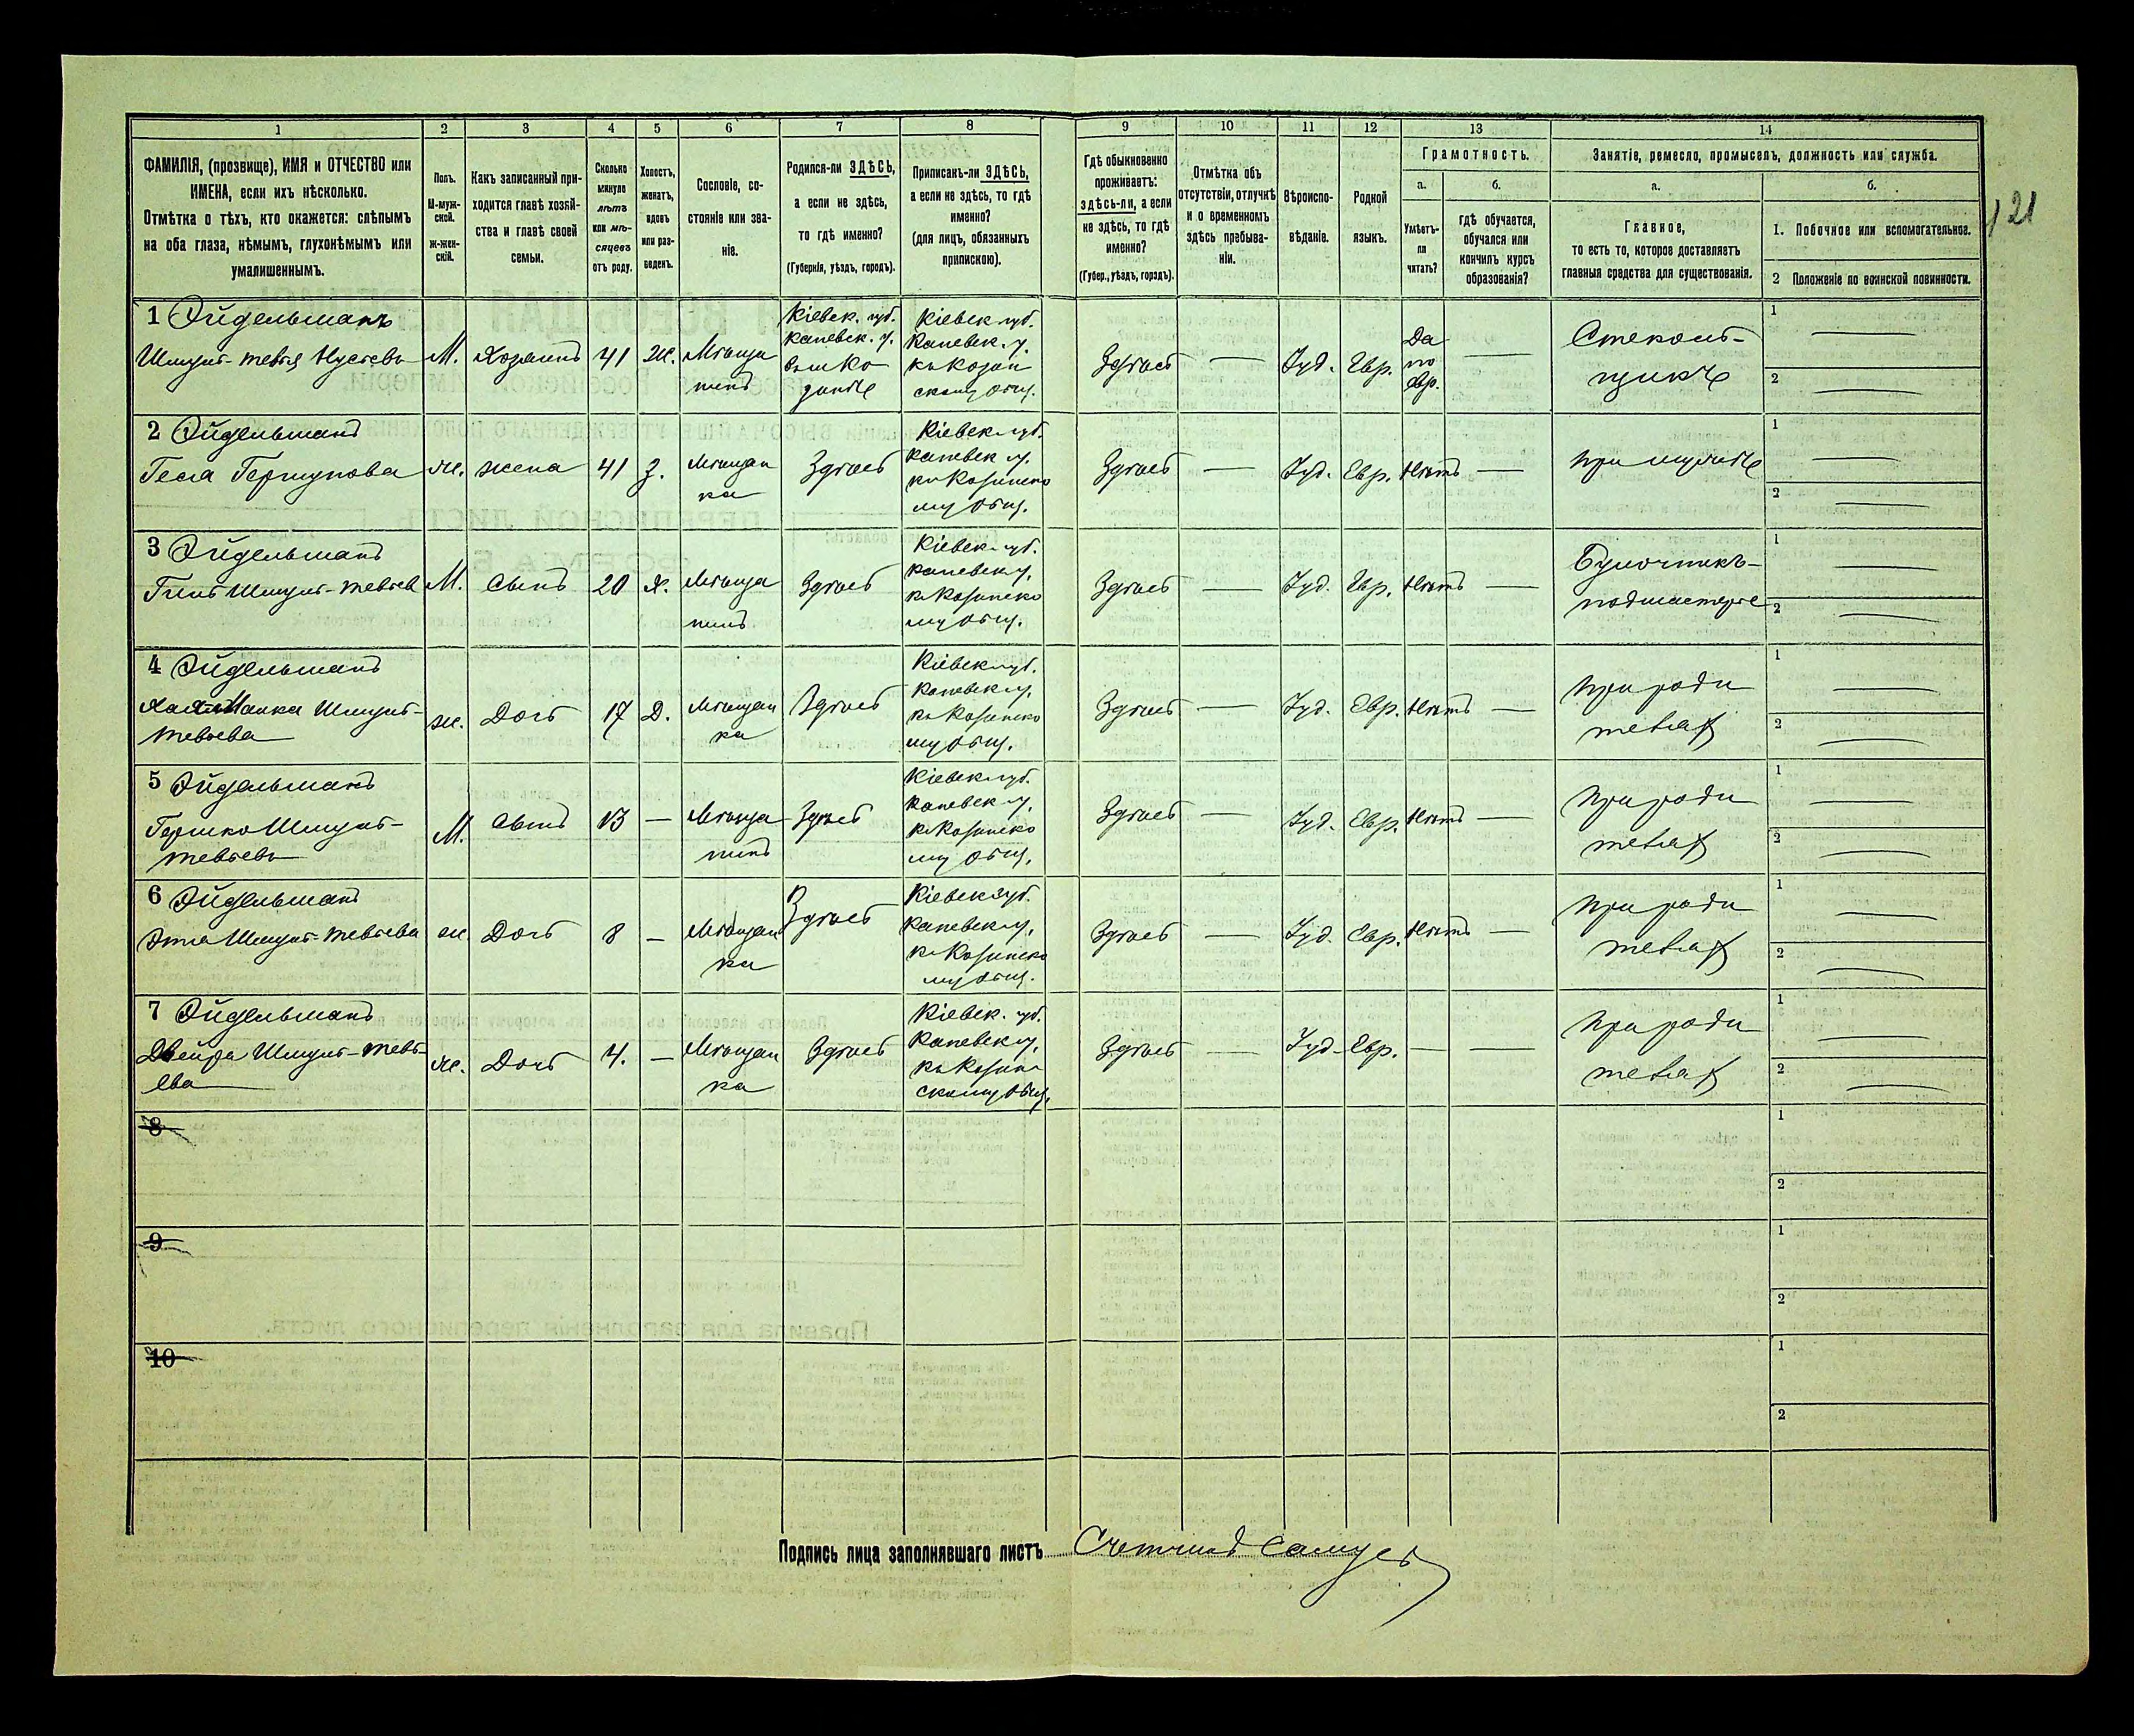 1
2
3
4
5
6
7
8
9
10
11
12
13
14
ФАМИЛІЯ, (прозвище), ИМЯ и ОТЧЕСТВО или
ИМЕНА, если ихъ нѣсколько.
Отмѣтка о тѣхъ, кто окажется: слѣпымъ
на оба глаза, нѣмымъ, глухонѣмымъ или
умалишеннымъ.
Полъ.
М-муж-
ской.
ж-жен-
скій.
Какъ записанный при-
ходится главѣ хозяй-
ства и главѣ своей
семьи.
Сколько
минуло
лѣтъ
или мѣ-
сяцевъ
отъ роду.
Холостъ,
женатъ,
вдовъ
или раз-
веденъ.
Сословіе, со-
стояніе или зва-
ніе.
Родился-ли ЗДѢСЬ,
а если не здѣсь,
то гдѣ именно?
(Губернія, уѣздъ, городъ).
Приписанъ-ли ЗДѢСЬ,
а если не здѣсь, то гдѣ
именно?
(для лицъ, обязанныхъ
припискою).
Гдѣ обыкновенно
проживаетъ:
здѣсь-ли, а если
не здѣсь, то гдѣ
именно?
(Губер., уѣздъ, городъ).
Отмѣтка объ
отсутствіи, отлучкѣ
и о временномъ
здѣсь пребыва-
ніи.
Вѣроиспо-
вѣданіе.
Родной
языкъ.
Грамотность.
а.
Умѣетъ-
ли
читать?
б.
гдѣ обучается,
обучался или
кончилъ курсъ
образованія?
Занятіе, ремесло, промыселъ, должность или служба.
а.
Главное,
то есть то, которое доставляетъ
главныя средства для существованія.
б.
1. Побочное или вспомогательное.
2 Положеніе по воинской повинности.
21
1 Эйдельманъ
Шмулъ-Тевья
М. Хозяинъ 41 Ж. Мѣща
нинъ
Кіевск. губ.
Каневск. у.
Кіевск. губ.
Каневск. у.
Здѣсь — Іуд. Евр. Да
по
евр. —
Стеколь-
щикъ
1 —
2 —
2 Эйдельманъ
Песя Гершунова ж. жена 41 З. Мѣщан
ка
Здѣсь
Кіевск. губ.
Каневск. у.
Здѣсь — Іуд. Евр. Нѣтъ —
при мужѣ
1 —
2 —
3 Эйдельманъ
Шмулъ-Тевьев М. Сынъ 20 Х. Мѣща
нинъ
Здѣсь
Кіевск. губ.
Каневск. у.
Здѣсь — Іуд. Евр. Нѣтъ —
Булочникъ-
подмастерье
1 —
2 —
4 Эйдельманъ
Шмулъ-
Тевьева ж. Дочь 17 Д. Мѣщан
ка
Здѣсь
Кіевск. губ.
Каневск. у.
Здѣсь — Іуд. Евр. Нѣтъ —
При роди
теляхъ
1 —
2 —
5 Эйдельманъ
Гершко Шмулъ-
Тевьевъ М. Сынъ 13 — Мѣща
нинъ
Здѣсь
Кіевск. губ.
Каневск. у.
Здѣсь — Іуд. Евр. Нѣтъ —
При роди
теляхъ
1 —
2 —
6 Эйдельманъ
Шмулъ-Тевьева ж. Дочь 8 — Мѣщан
ка
Здѣсь
Кіевск. губ.
Каневск. у.
Здѣсь — Іуд. Евр. Нѣтъ —
При роди
теляхъ
1 —
2 —
7 Эйдельманъ
Двейра Шмулъ-Тевь-
ева ж. Дочь 4. — Мѣщан
ка
Здѣсь
Кіевск. губ.
Каневск. у.
Здѣсь — Іуд. Евр. — —
При роди
теляхъ
1 —
2 —
8
1
2
9
1
2
10
1
2
Подпись лица заполнявшаго листъ Счетчикъ